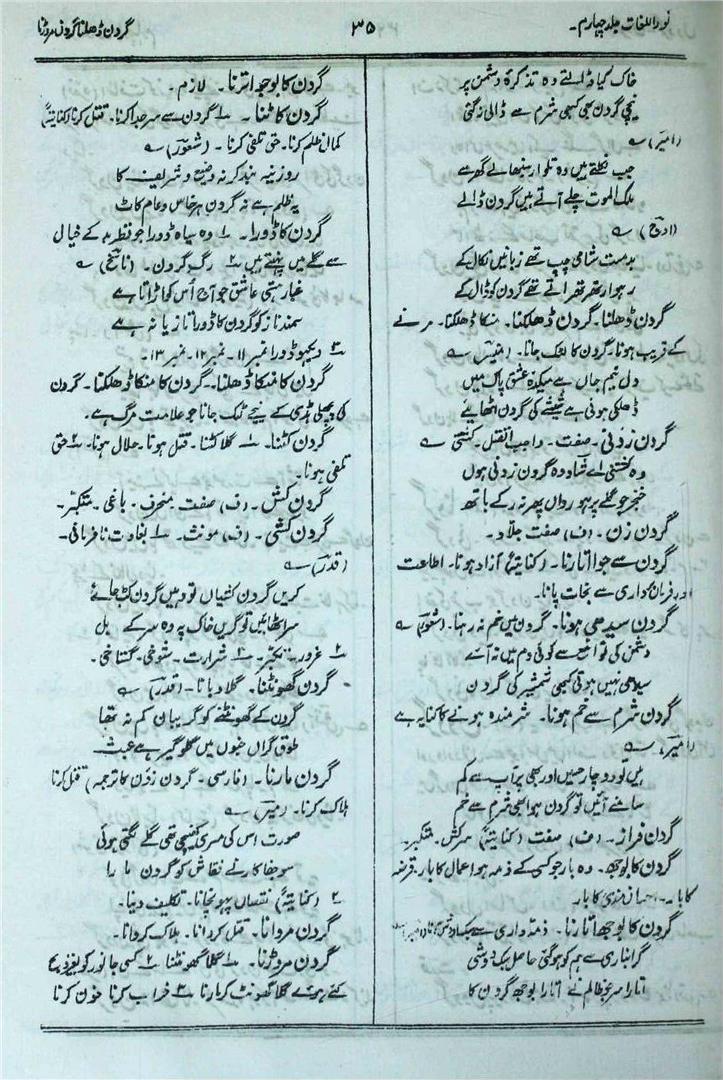 نور اللغات جلد چہارم۔
۳۵
گردن ڈھلنا گردن مروڑنا
خاک کیا ڈالتے وہ تذکرۂ دشمن پر
نیچی گردن بھی کبھی شرم سے ڈالی نہ گئی
(امیر) ؎
جب نکلتے ہیں وہ تلوار سنبھالے گھر سے
ملک الموت چلے آتے ہیں گردن ڈالے
(اوج) ؎
بدمست شامی چپ تھے زبانیں نکال کے
رہوار تھر تھراتے تھے گردن کو ڈال کے
گردن ڈھلنا۔ گردن ڈھلکنا۔ منکا ڈھلکنا۔ مرنے
کے قریب ہونا۔ گردن کا لٹک جانا۔ ؎
دل نیم جاں ہے میکدۂ عشق پاک میں
ڈھلکی ہوئی ہے شیشے کی گردن اٹھائیے
گردن زدنی۔ صفت۔ واجب القتل۔ کشتنی ؎
وہ کشتنی اے شاد وہ گردن زدنی ہوں
خنجر جو گلے پر ہو رواں پھر نہ رکے ہاتھ
گردن زن۔ (ف) صفت جلاد۔
گردن سے جوا اتارنا۔ (کنایتہً) آزاد ہونا۔ اطاعت
اور فرماں برداری سے نجات پانا۔
گردن سیدھی ہونا۔ گردن میں خم نہ رہنا۔ (شعور) ؎
دشمن کی تواضع سے کوئی دم میں نہ آئے
سیدھی نہیں ہوتی کبھی شمشیر کی گردن
گردن شرم سے خم ہونا۔ شرمندہ ہونے کا کنایہ ہے
(امیر) ؎
ہیں لو دو چار حسیں اور بھی پر آپ سے کم
سامنے آئیں تو گردن ہو ابھی شرم سے خم
گردن فراز۔ (ف) صفت (کنایتہً) سرکش۔ متکبر۔
گردن کا بوجھ۔ وہ بار جو کسی کے ذمہ ہو اعمال کا بار۔ قرضہ
کا بار۔ احسان مندی کا بار۔
گردن کا بوجھ اتارنا۔ ذمہ داری سے سبکدوش
گرانباری سے ہم کو ہو گئی حاصل سبکدوشی
اتارا سر غظالم نے اتارا بوجھ گردن کا
گردن کا بوجھ اترنا۔ لازم۔
گردن کاٹنا۔ ۱؎ گردن سے سر جدا کرنا۔ قتل کرنا (کنایتہً)
کمال ظلم کرنا۔ حق تلفی کرنا۔ (شعور) ؎
روزینہ بند کر نہ وضیع و شریف کا
یہ ظلم ہے نہ گردن ہر خاص و عام کاٹ
گردن کا ڈورا۔ ۱؎ وہ سیاہ ڈورا جو نظر بد کے خیال
سے گلے میں پہنتے ہیں ۲؎ رگ گردن۔ (ناسخ) ؎
غبار ہستی عاشق جو آج اس کو اڑاتا ہے
سمند ناز کو گردن کا ڈورا تازیانہ ہے
۳؎ دیکھو ڈورا نمبر ۱۱۔ نمبر ۱۲۔ نمبر ۱۳۔
گردن کا منکا ڈھلنا۔ گردن کا منکا ڈھلکنا۔ گردن
کی پچھلی ہڈی کے نیچے لٹک جانا جو علامت مرگ ہے۔
گردن کٹنا۔ ۱؎ گلا کٹنا۔ قتل ہونا۔ حلال ہونا۔ ۲؎ حق
تلفی ہونا۔
گردن کش۔ (ف) صفت منحرف۔ باغی۔ متکبر۔
گردن کشی۔ (ف) مونث۔ ۱؎ بغاوت نافرمانی۔
(قدر) ؎
کریں گردن کشیاں تو وہیں گردن کٹ جائے
سر اٹھائیں تو گریں خاک پہ وہ سر کے بل
۲؎ غرور۔ تکبر۔ ۳؎ شرارت۔ شوخی۔ گستاخی۔
گردن گھونٹنا۔ گلا دبانا۔ (قدر) ؎
گردن کے گھونٹنے کو گریبان کم نہ تھا
طوق گراں جنوں میں گلوگیر ہے عبث
گردن مارنا۔ (فارسی۔ گردن زدن کا ترجمہ) قتل کرنا
ہلاک کرنا۔ (میر) ؎
صورت اس کی مری کھینچی تھی گلے لگتی ہوئی
سو جفا کار نے نقاش کو گردن مارا
۲؎ (کنایتہً) نقصان پہونچانا۔ تکلیف دینا۔
گردن مروانا۔ قتل کروانا۔ ہلاک کروانا۔
گردن مروڑنا۔ ۱؎ گلا گھونٹنا ۲؎ کسی جانور کو بغیر ذبح
کئے ہوئے گلا گھونٹ کر مارنا ۳؎ خراب کرنا خون کرنا